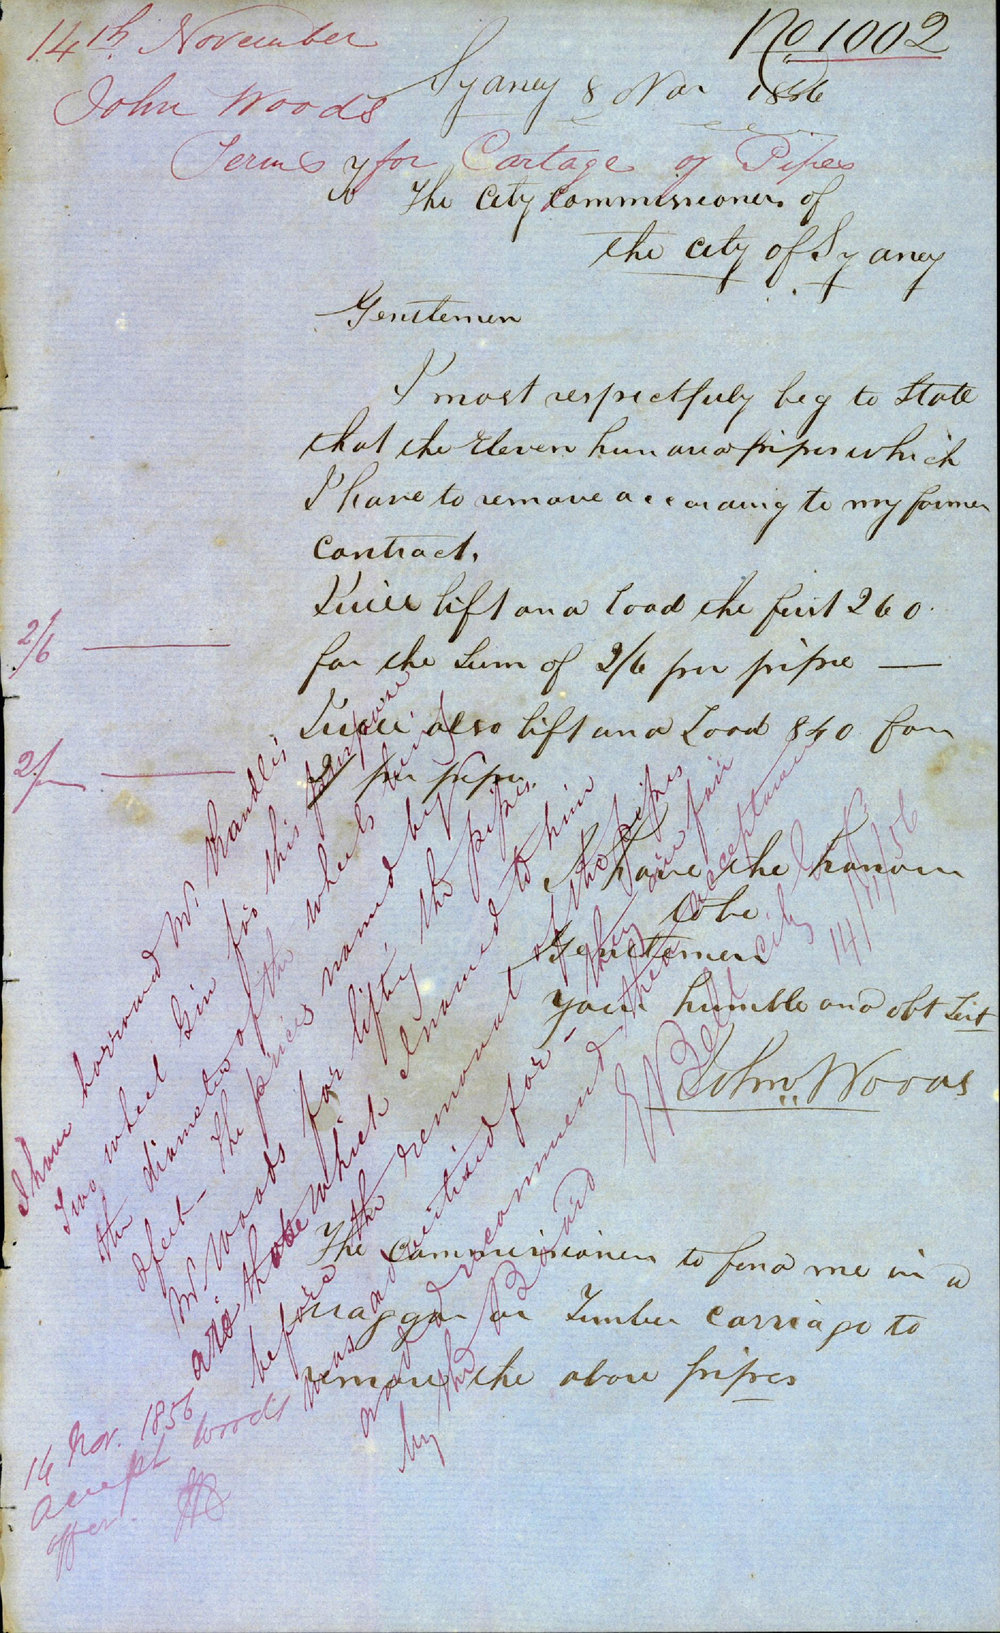 14th November
No 1002
John Woods
Sydney 8 Nov 1856
Terms for Cartage of Pipes
To The City Commissioners of
the City of Sydney
Gentlemen
I most respectfuly beg to State
that the Eleven hundred pipes which
I have to remove according to my former
contract.
I will lift and load the first 260
for the Sum of 2/6 per pipe —
2/6 —
I will also lift and Load 840 for
2/ per pipe.
2/- —
I have the honour
to be
Gentlemen
Your humble and obt Svt
John Woods
The Commissioners to find me in a
waggon or Timber Carriage to
remove the above pipes
I have borrowed Mr. Randle's
Two wheel Gin for this purpose
the diameter of the wheels being
feet – The prices named by
Mr. Woods for lifting the pipes
are those which I named to him
before the removal of the pipes
was advertised for – they are fair
and I recommend their acceptance
by the Board
E Bell City
14/11/56
14 Nov. 1856
Accept Woods
offer.